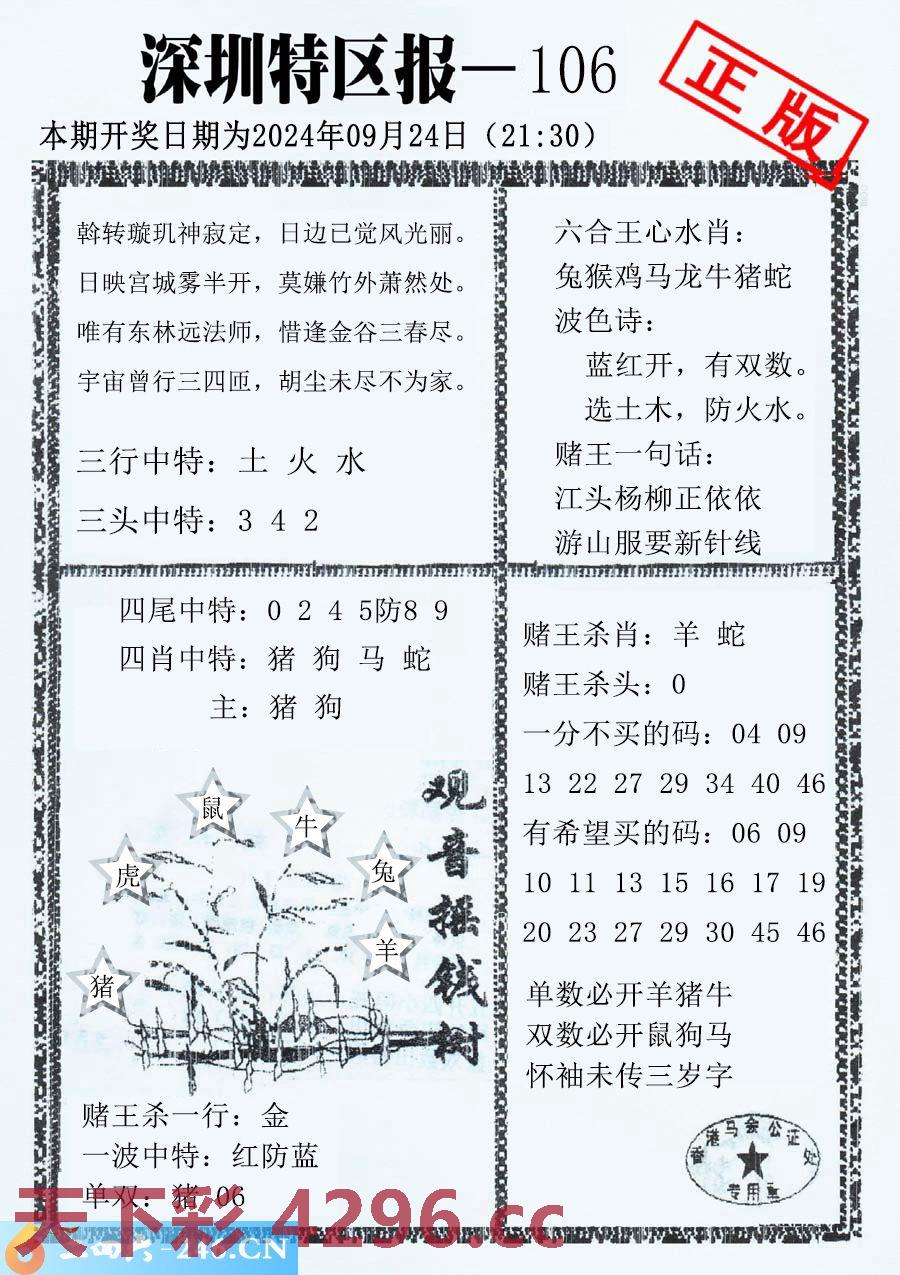 深圳特区报—106
正版
本期开奖日期为2024年09月24日（21:30）
斡转璇玑神寂定，日边已觉风光丽。
日映宫城雾半开，莫嫌竹外萧然处。
唯有东林远法师，惜逢金谷三春尽。
宇宙曾行三四匝，胡尘未尽不为家。
三行中特：土 火 水
三头中特：3 4 2
六合王心水肖：
兔猴鸡马龙牛猪蛇
波色诗：
蓝红开，有双数。
选土木，防火水。
赌王一句话：
江头杨柳正依依
游山服要新针线
四尾中特：0 2 4 5防8 9
四肖中特：猪 狗 马 蛇
主：猪 狗
鼠
牛
虎
兔
羊
猪
观音摇钱树
赌王杀一行：金
一波中特：红防蓝
单双：猪 06
赌王杀肖：羊 蛇
赌王杀头：0
一分不买的码：04 09
13 22 27 29 34 40 46
有希望买的码：06 09
10 11 13 15 16 17 19
20 23 27 29 30 45 46
单数必开羊猪牛
双数必开鼠狗马
怀袖未传三岁字
香港马会公证处
专用章
天下彩 4296.cc
-246.CN